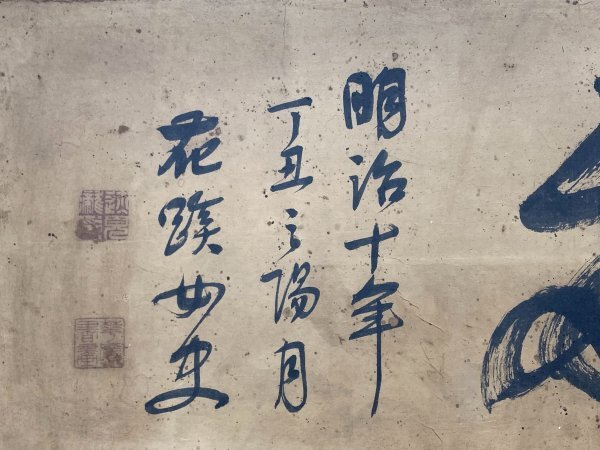 明治十年
丁丑之陽月
花蹊女史